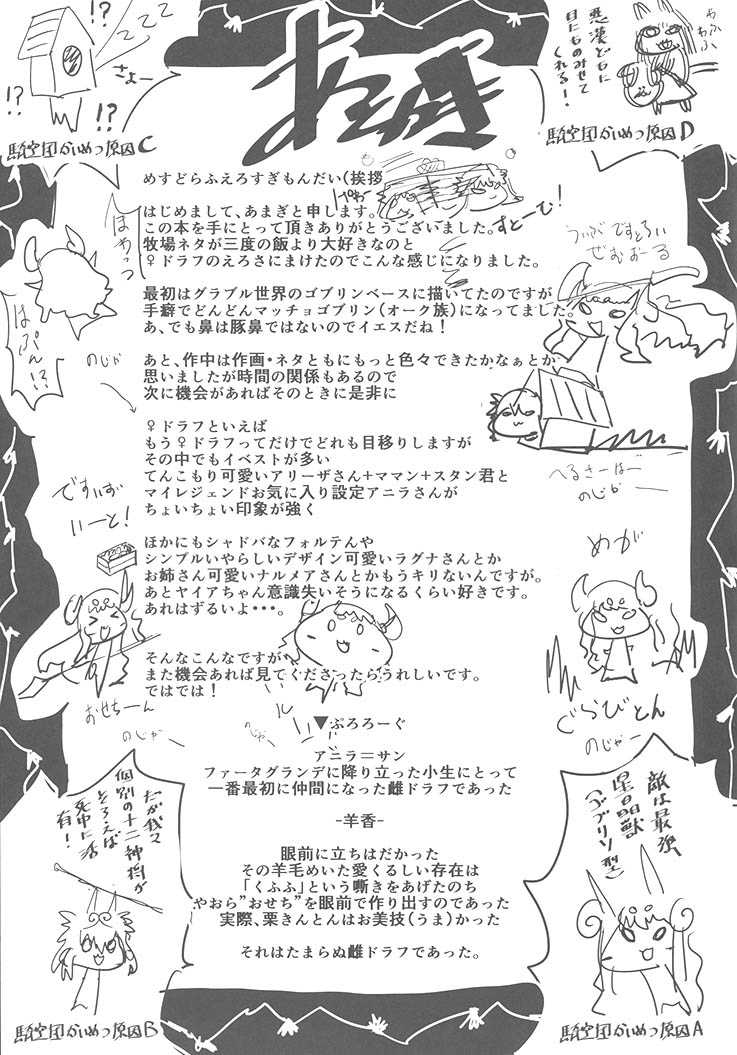 あとがき
めすどらふえろすぎもんだい(挨拶
はじめまして、あまぎと申します。
この本を手にとって頂きありがとうございました。
牧場ネタが三度の飯より大好きなのと
♀ドラフのえろさにまけたのでこんな感じになりました。
最初はグラブル世界のゴブリンベースに描いてたのですが
手癖でどんどんマッチョゴブリン(オーク族)になってました。
あ、でも鼻は豚鼻ではないのでイエスだね！
あと、作中は作画・ネタともにもっと色々できたかなぁとか
思いましたが時間の関係もあるので
次に機会があればそのときに是非に
♀ドラフといえば
もう♀ドラフってだけでどれも目移りしますが
その中でもイベストが多い
てんこもり可愛いアリーザさん+ママン+スタン君と
マイレジェンドお気に入り設定アニラさんが
ちょいちょい印象が強く
ほかにもシャドバなフォルテんや
シンプルいやらしいデザイン可愛いラグナさんとか
お姉さん可愛いナルメアさんとかもうキリないんですが。
あとヤイアちゃん意識失いそうになるくらい好きです。
あれはずるいよ・・・。
そんなこんなですが
また機会あれば見てくださったらうれしいです。
ではでは！
▼ぷろろーぐ
アニラ＝サン
ファータグランデに降り立った小生にとって
一番最初に仲間になった雌ドラフであった
-羊香-
眼前に立ちはだかった
その羊毛めいた愛くるしい存在は
「くふふ」という嘶きをあげたのち
やおら"おせち"を眼前で作り出すのであった
実際、栗きんとんはお美技(うま)かった
それはたまらぬ雌ドラフであった。
!?
ZZZ
さよー
!?
!?
騎空団かいめつ原因C
悪漢どもに
目にものみせて
くれる！
騎空団かいめつ原因D
すとーむ！
ほぁっっ
はぷん!?
のじゃ
うぃがですとろい
ぜむおーる
へるさーばー
のじゃー
ですぃず
いーと！
おせちーん
のじゃー
めが
ぐらびとん
のじゃー
だが我ら
個別の十二神将が
そろえば
死中に活
有！
騎空団かいめつ原因B
敵は最強
星晶獣
(ゴブリン型)
騎空団かいめつ原因A